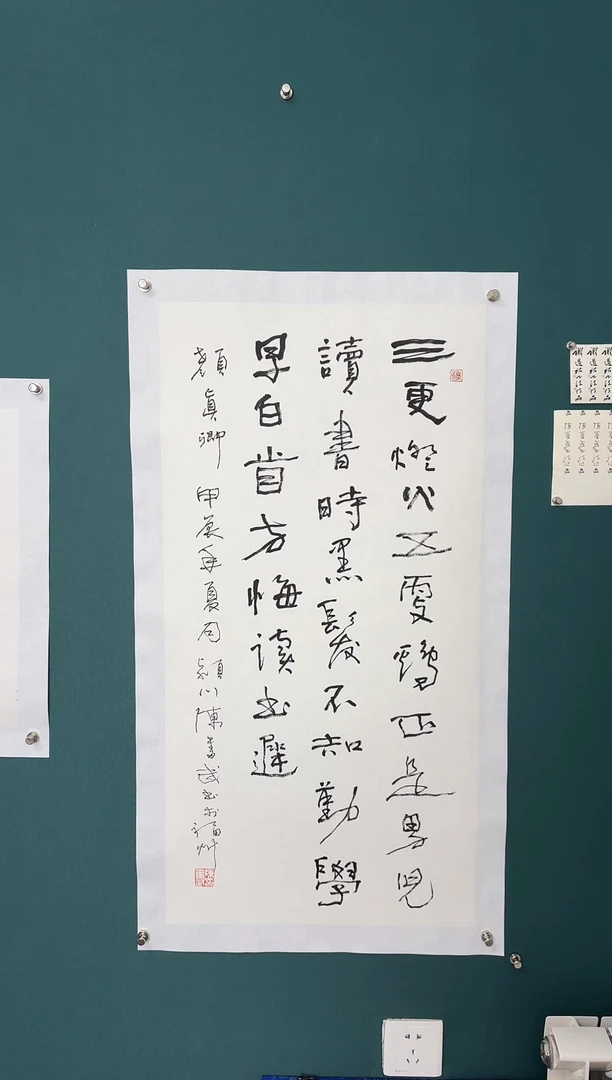 三更燈火五更鷄正是男兒
讀書時黑髮不知勤學
早白首方悔讀书遲
顏真卿 甲辰年夏 潁川陳書於福州